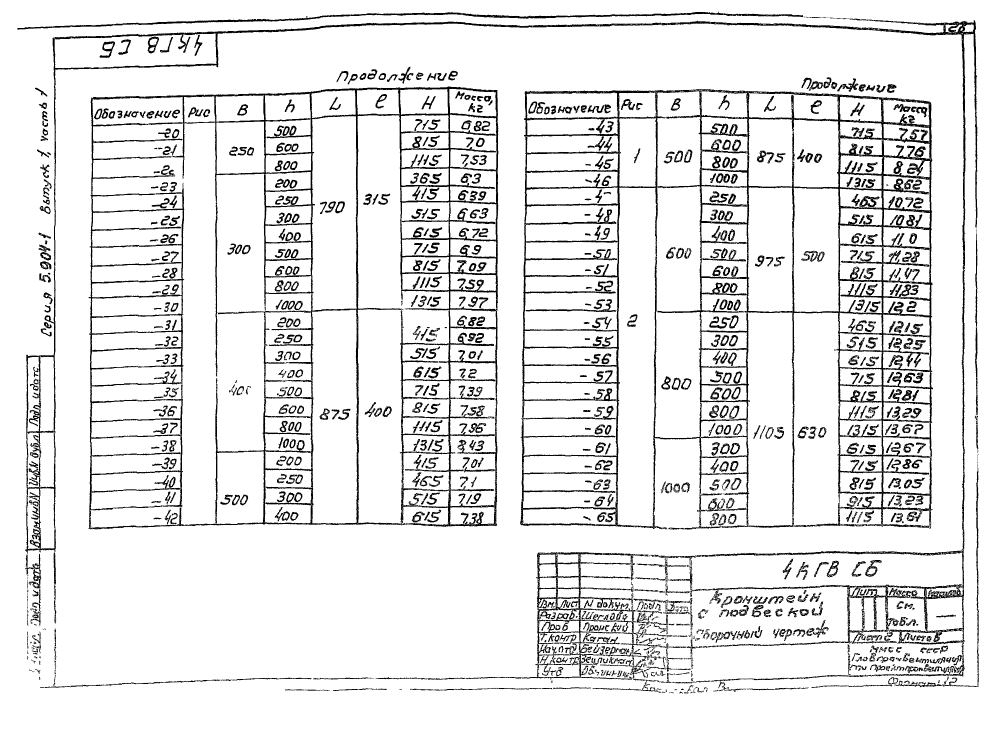 28
4КГВ СБ
Серия 5.904-1 Выпуск 1, часть 1
Продолжение
Обозначение Рис B h L e H Масса, кг
-20 250 500 790 315 715 6,82
-21 600 815 7,0
800 1115 7,53
-23 300 200 365 6,3
-24 250 415 6,39
-25 300 515 6,63
-26 400 615 6,72
-27 500 715 6,9
-28 600 815 7,09
-29 800 1115 7,59
-30 1000 1315 7,97
-31 400 200 875 400 6,82
-32 250 415 6,92
-33 300 515 7,01
-34 400 615 7,2
-35 500 715 7,39
-36 600 815 7,58
-37 800 1115 7,96
-38 1000 1315 8,43
-39 500 200 415 7,01
-40 250 465 7,1
-41 300 515 7,19
-42 400 615 7,38
Продолжение
Обозначение Рис B h L e H Масса кг
-43 1 500 500 875 400 715 7,57
-44 600 815 7,76
-45 800 1115 8,24
-46 1000 1315 8,62
-4 2 600 250 975 500 465 10,72
-48 300 515 10,81
-49 400 615 11,0
-50 500 715 11,28
-51 600 815 11,47
-52 800 1115 11,83
-53 1000 1315 12,2
-54 800 250 1105 630 465 12,15
-55 300 515 12,25
-56 400 615 12,44
-57 500 715 12,63
-58 600 815 12,81
-59 800 1115 13,29
-60 1000 1315 13,67
-61 1000 300 615 12,67
-62 400 715 12,86
-63 500 815 13,05
-64 600 915 13,23
-65 800 1115 13,61
4КГВ СБ
Кронштейн
с подвеской
Сборочный чертеж
Лит Масса
см.
табл.
Лист 2 Листов
Изм. Лист N докум. Подп. Дата
Разраб. Щеглова
Пров Пронский
Т.контр Каган
Нач.отд Бейзерган
Н.контр
Утв
ММСС СССР
Взам.инв.N Инв.N дубл. Подп. и дата
Подп. и дата
Формат 12